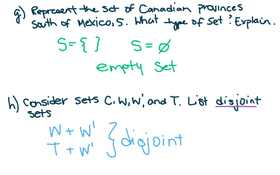 g) Represent the set of Canadian provinces
South of Mexico, S. What type of Set? Explain.
S = { } S = ∅
empty set
h) Consider sets C, W, W', and T. List disjoint
sets
W + W'
T + W' } disjoint